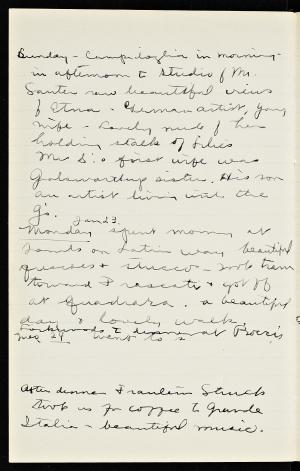 Sunday - Campidoglio in morning -
in afternoon to Studio of Mr.
Sauter saw beautiful views
of Etna - German artist, young
wife - Lovely nude of her
holding stalk of lilies
Mr S.'s first wife was
Galsworthy's sister. His son
an artist living with the
G's.
Jan 23.
Monday spent morning at
tombs on Latin way beautiful
frescoes & stucco - took tram
toward Frascati & got off
at Quadraro. a beautiful
day & lovely walk.
to dinner at
24 went to
After dinner Fraulein Struck
took us for coffee to Grande
Italia - beautiful music.